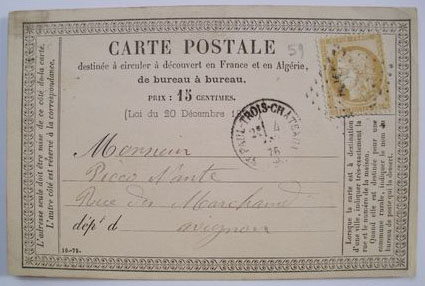 59
CARTE POSTALE
destinée à circuler à découvert en France et en Algérie,
de bureau à bureau.
PRIX : 15 CENTIMES.
(Loi du 20 Décembre 1
L'adresse seule doit être mise de ce côté de la carte.
L'autre côté est réservé à la correspondance.
PAUL-TROIS-CHATEAUX
4
76
Monsieur
Rue des Marchand
dépt d
avignon
Lorsque la carte est à destination
d'une ville, indiquer très-exactement la
rue et le numéro de la maison.
Quand elle est destinée pour une
commune rurale, indiquer le nom du
bureau de poste qui la dessert.